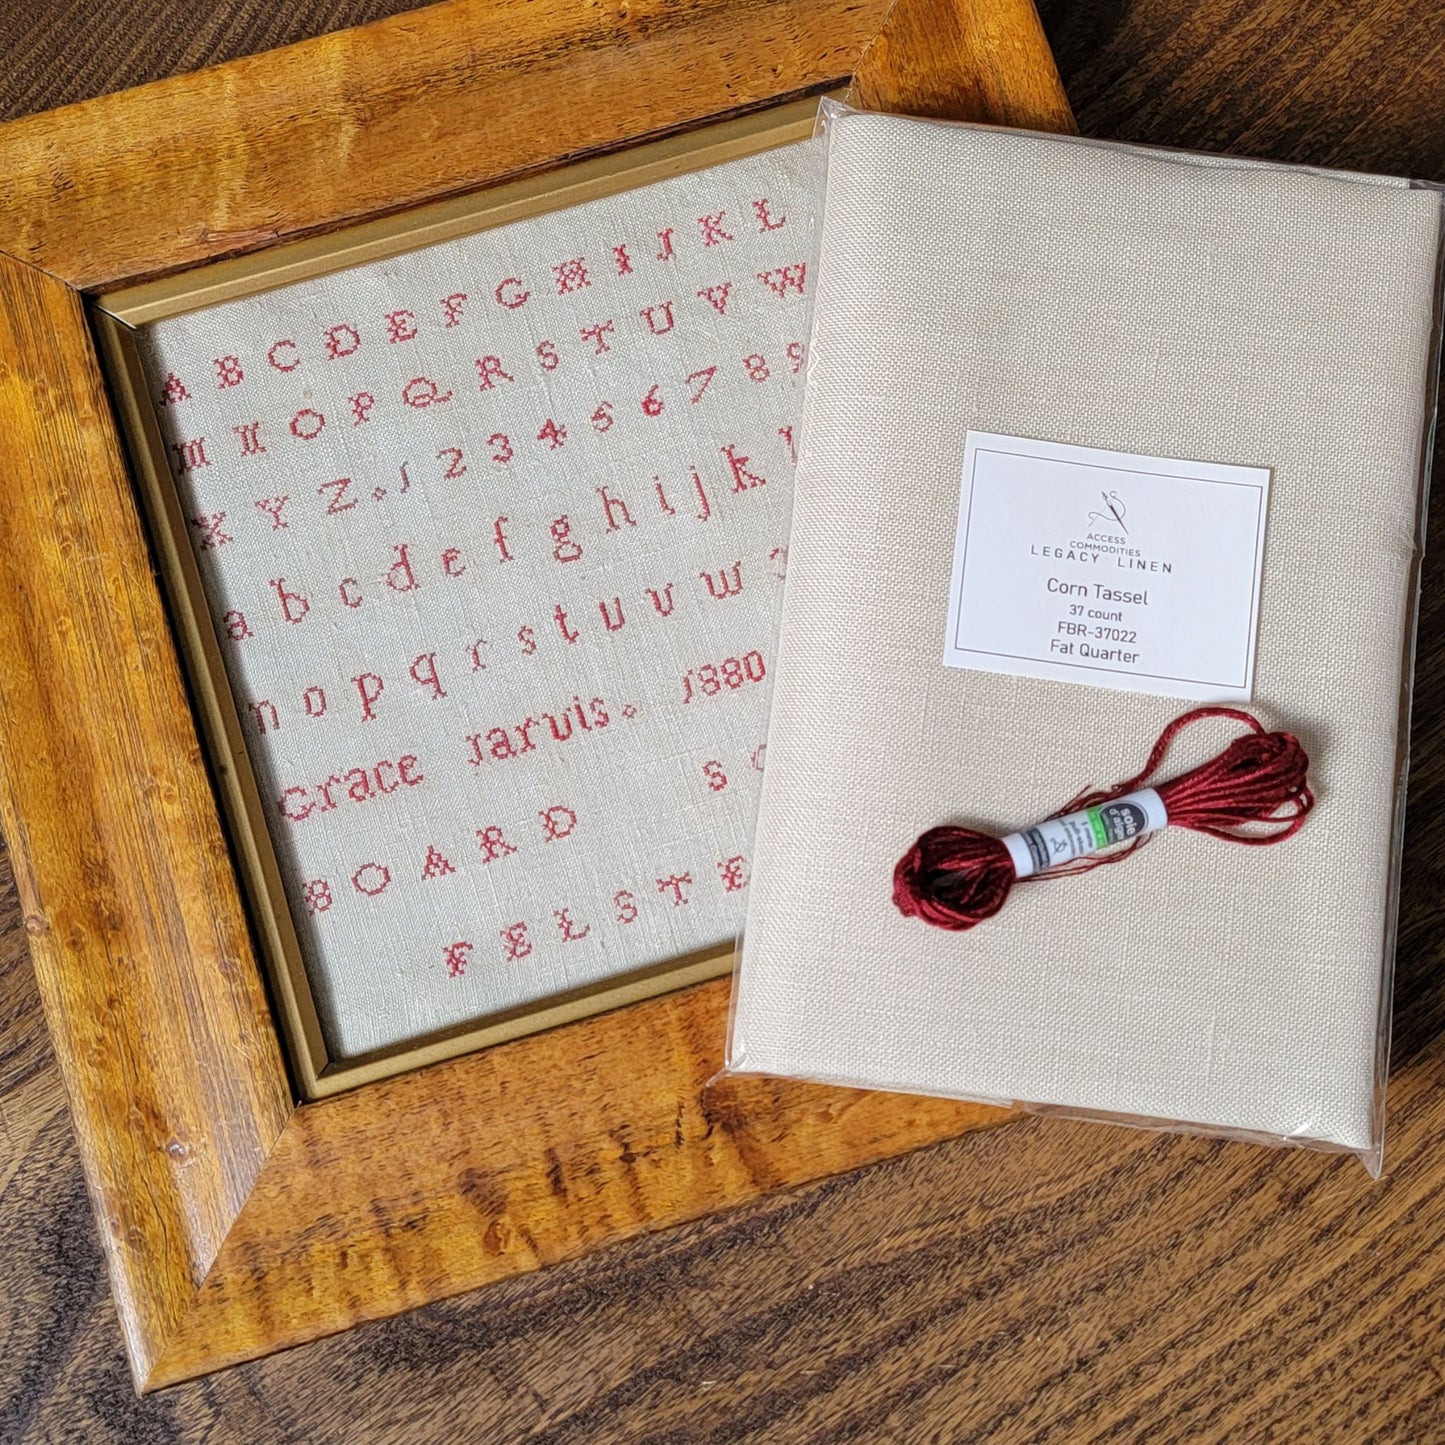 A B C D E F G H I J K L
M N O P Q R S T U V W
X Y Z . 1 2 3 4 5 6 7 8 9
a b c d e f g h i j k l
n o p q r s t u v w
Grace Jarvis. 1880
BOARD S
FELSTE
ACCESS
COMMODITIES
LEGACY LINEN
Corn Tassel
37 count
FBR-37022
Fat Quarter
soie
d'alger